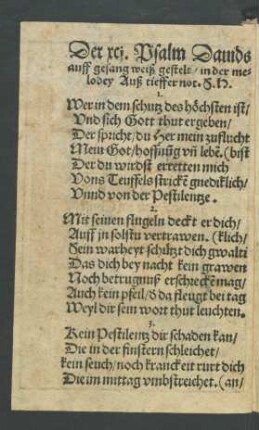 Der xcj. Psalm Dauids
auff gesang weiß gestelt / in der me-
lodey Auß tieffer not. H.
1.
Wer in dem schutz des höchsten ist /
Vnd sich Gott thut ergeben /
Der spricht / du Her mein zuflucht
Mein Got / hoffnūg vñ lebē. (bist
Der du wirdst erretten mich
Vons Teuffels stricke gnediklich /
Vnnd von der Pestilentze.
2.
Mit seinen flugeln deckt er dich /
Auff jn solstu vertrawen. (klich /
Sein warheyt schützt dich gwalti
Das dich bey nacht kein grawen
Noch betrugnuß erschreckē mag /
Auch kein pfeil / d da fleugt bei tag
Weyl dir sein wort thut leuchten.
3.
Kein Pestilentz dir schaden kan /
Die in der finstern schleichet /
kein seuch / noch kranckeit rurt dich
Die im mittag vmbstreichet. (an /